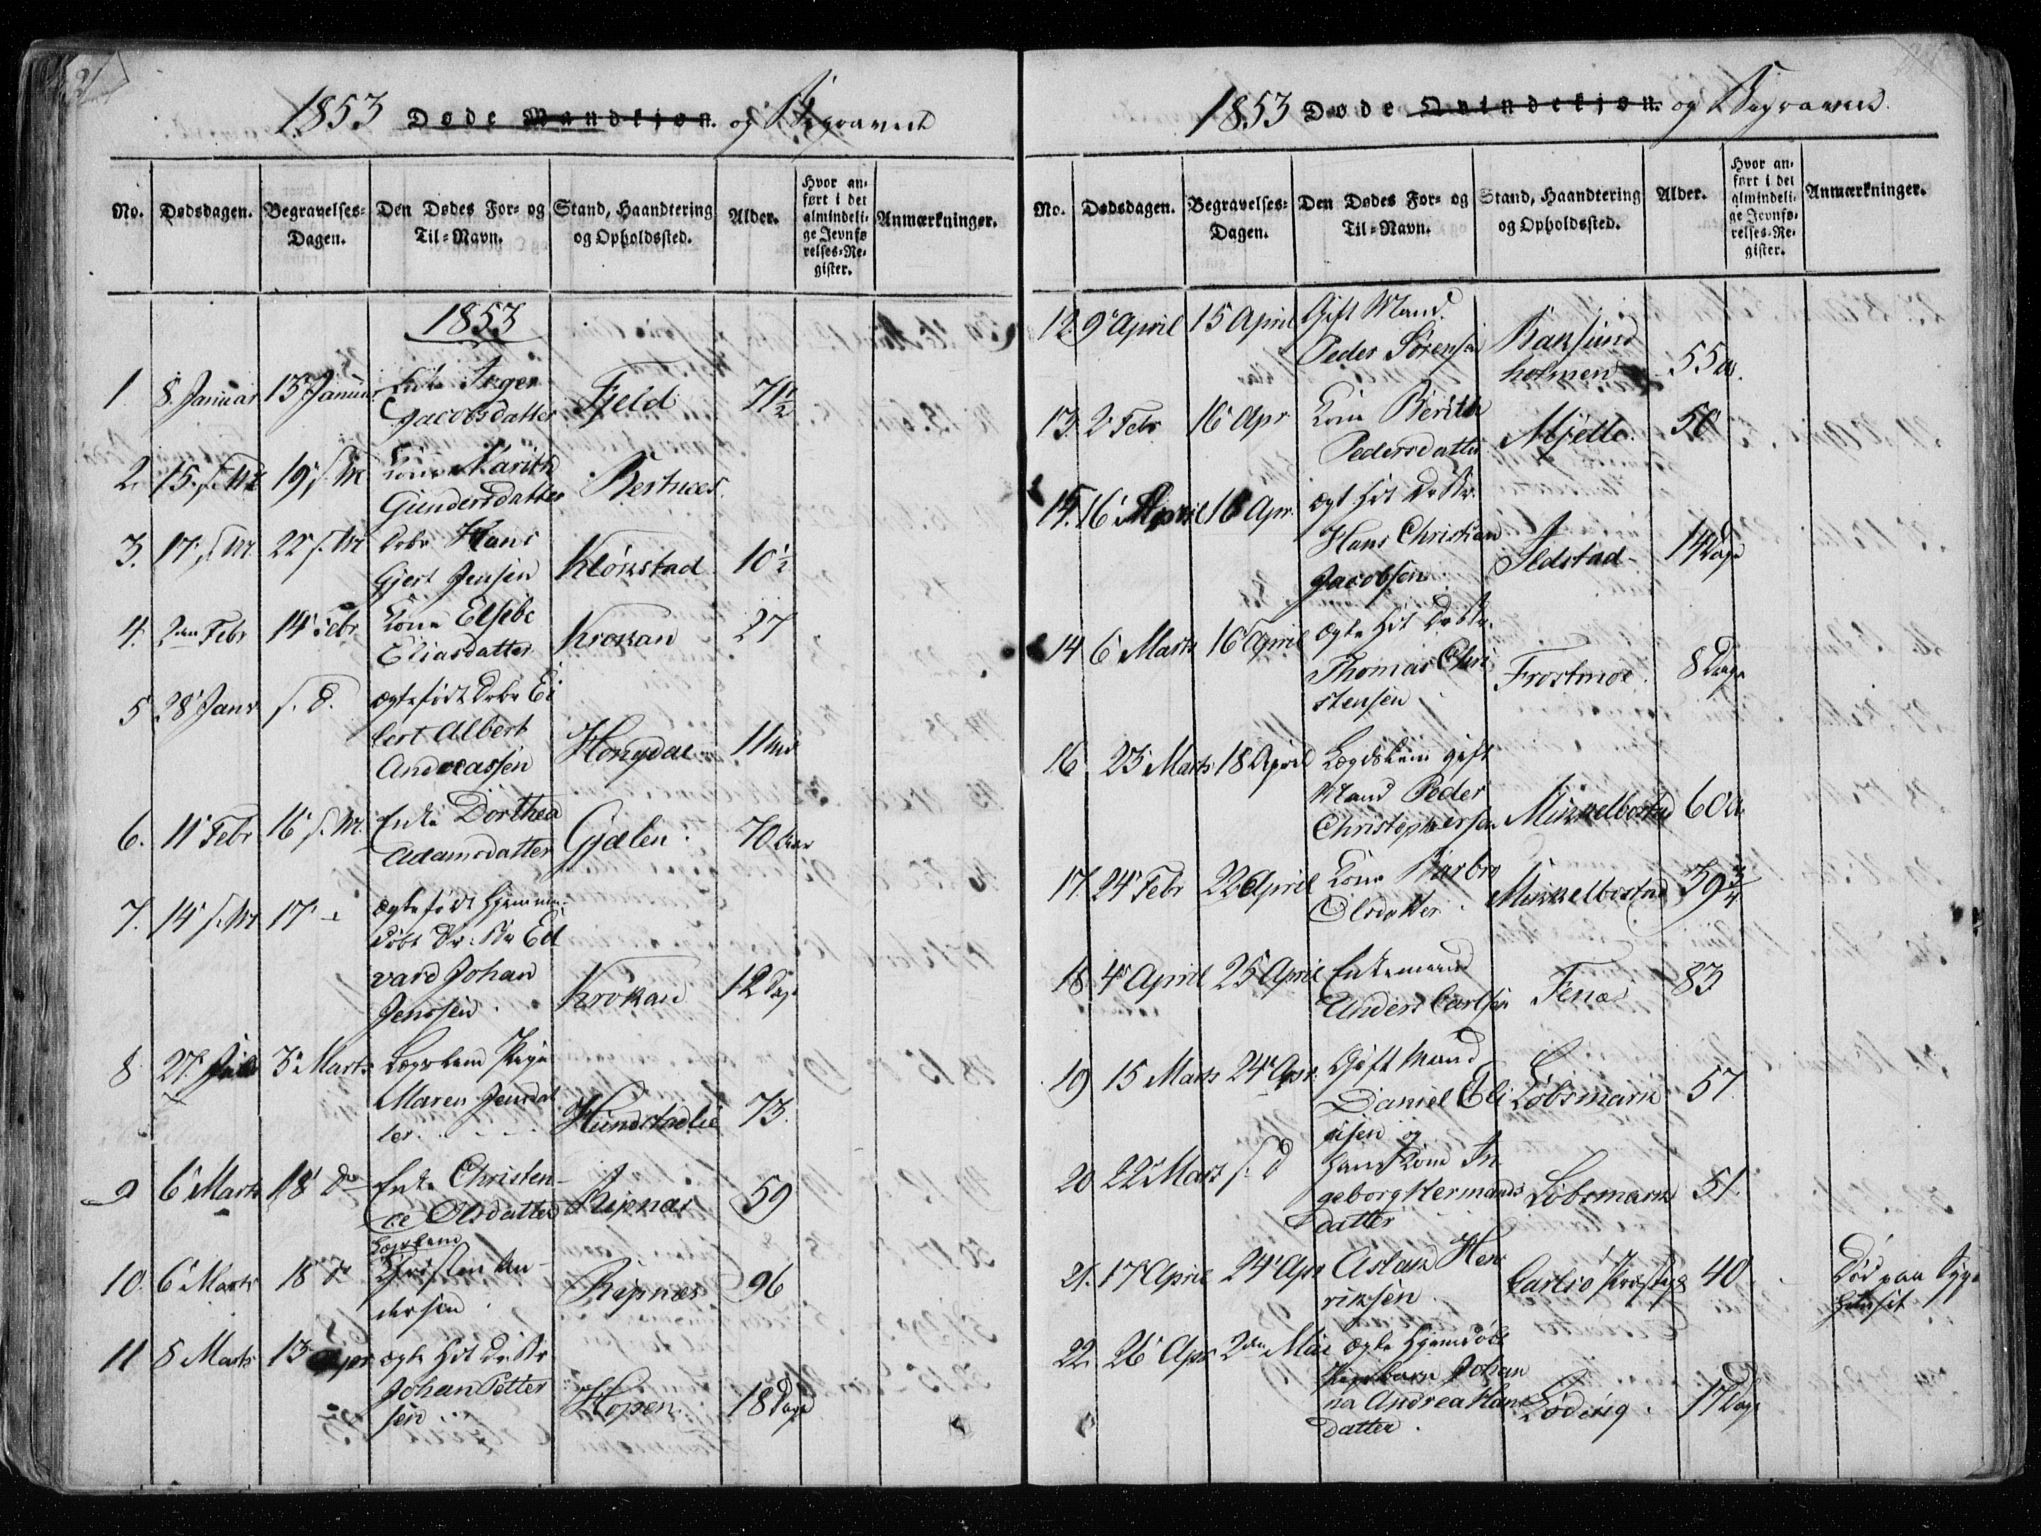 1853 Døde Mandkjøn. og Begravede
No.
Dødsdagen.
Begravelses-
Dagen.
Den Dødes For- og
Til-Navn.
Stand, Haandtering
og Opholdssted.
Alder.
Hvor an-
ført i det
almindeli-
ge Jevnfø
relses-Re-
gister.
Anmærkninger.
1853
1 8 Januar 13 Januar Enke Inger
Jacobsdatter Fjeld 71½
2. 15 s. M 19 s. M Kone Marith
Gundersdatter Bertnes.
3. 17 s. M 22 s. M Drbr Hans
Gjert Jensen Kløkstad 10½
4. 2den Febr 14 Febr Kone Elsebe
Eliasdatter Krokan 27
5 28 Janr s. D. ægtefødt Drbr Ei
lert Albert
Andreassen Hongdal 11
6. 11 Febr 16 s. M. Enke Dorthea
Adamsdatter Gjælen. 70 Aar
7. 14 s. M 17 ægtefødt hjemme-
døbt Dr: Br Ed
vard Johan
Jenssen. Krokan 12 Dage
8 27 3 Marts Lægdslem Pige
Maren Jensdat
ter. Hundstadlie 73.
9 6 Marts 18 Do Enke Christen-
ce Olsdatter Ripnæs 59
Lægslem
10. 6 Marts 18 D. Christen An-
dersen. Ripnæs 96
11 8 Marts 13 Apr ægte Drbr
Johan Petter
sen Hopen. 18 Dage
1853 Døde Qvindekjøn. og Begravede.
No.
Dødsdagen.
Begravelses-
Dagen.
Den Dødes For- og
Til-Navn.
Stand, Haandtering
og Opholdssted.
Alder.
Hvor an-
ført i det
almindeli-
ge Jevnfø-
relses-Re-
gister.
Anmærkninger.
12. 9 April 15 April Gift Mand.
Peder Sørensen Baksund
holmen 55 a.
13. 2 Febr 16 Apr Kone Berith
Pedersdatter Mjelle. 50
15. 16 April 16 Apr. ægt
Hans Christian
Jacobsen. Ildstad 14 Dage
14 6 Marts 16 April ægte
Thomas Chri
stensen Frostmoe. 8 Dage
16. 23 Marts 18 April Lægdslem gift
Mand Peder
Christophersen Mikkelbostad 60 a.
17. 24 Febr 22 April Kone Barbro
Olsdatter. Mikkelbostad 39¾
18. 4 April 25 April Enkemand
Anders Carlsen Fenæs 83
19 15 Marts 24 Apr. Gift Mand
Daniel Eli Løbsmark 57.
asen og
20 22 Mars s. D hans Kone In
geborg Hermands Løbsmark 51.
datter
21. 17 April 24 Apr Aslak Hen
riksen. 40 Død paa Syge
huset
22. 26 Apr 2den Mai ægte hjemdøbt
Pigebarn Johan
na Andrea Hans Løding. 17 Dage
datter.